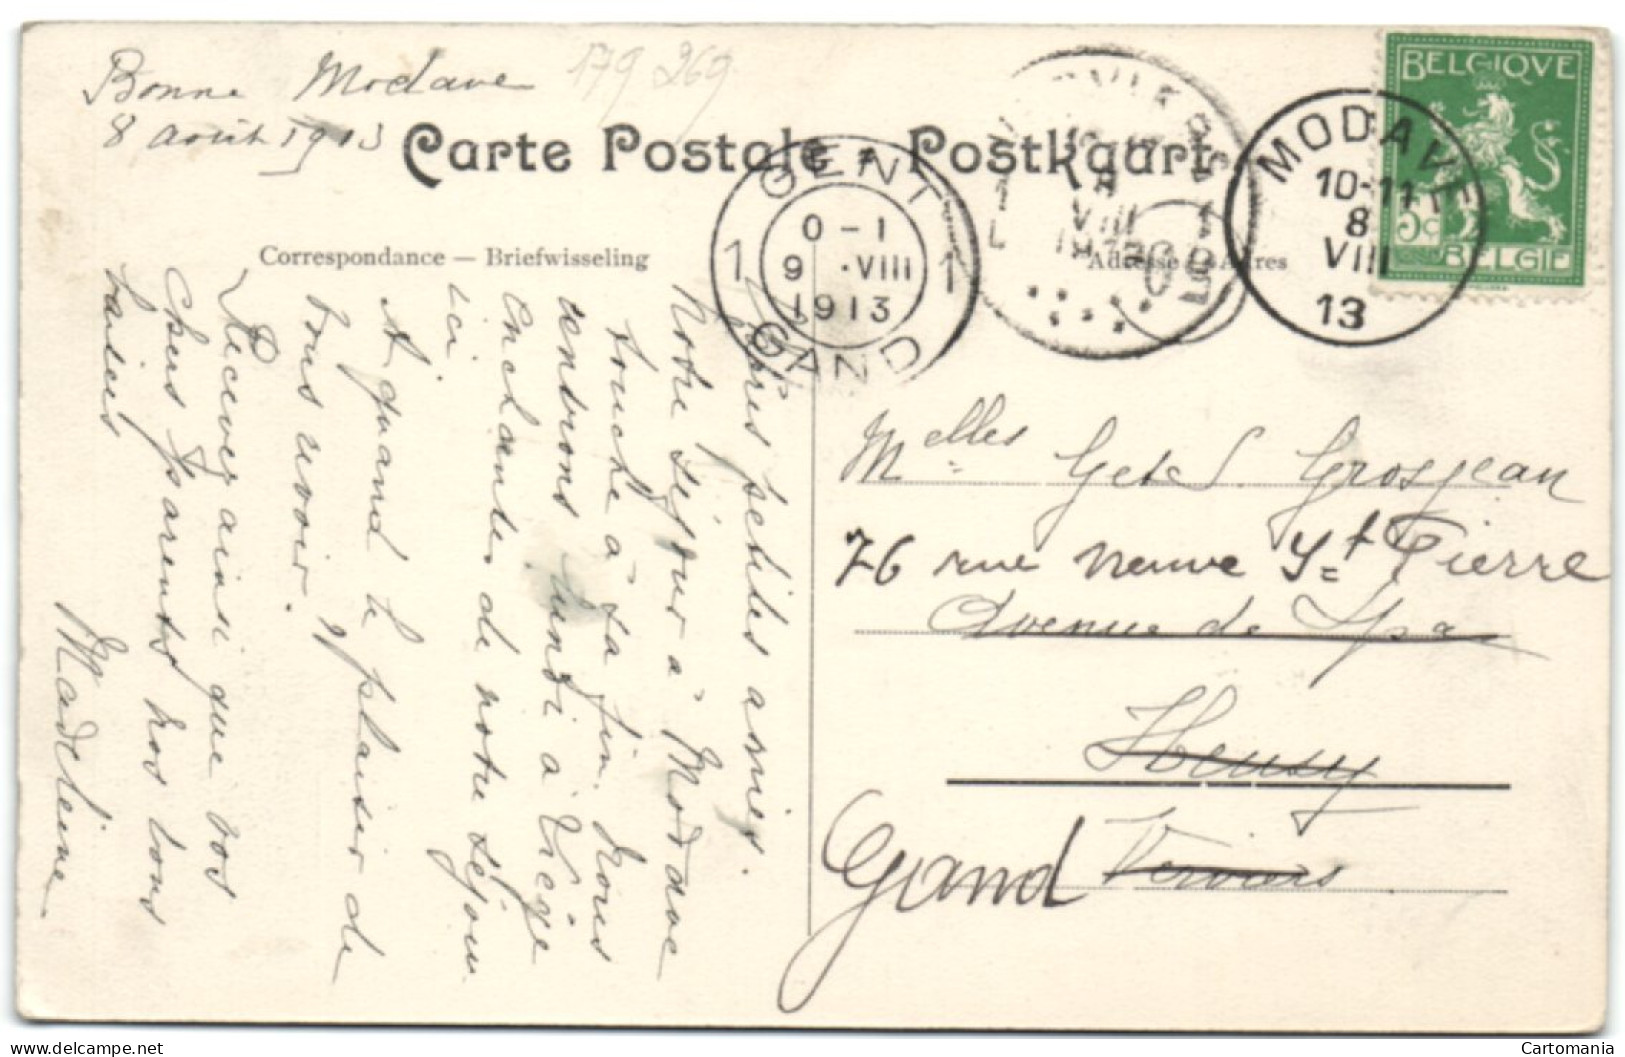 Bonne Modave 179 269
8 août 1913
Carte Postale Postkaart
Correspondance — Briefwisseling
Adresse Adres
BELGIQVE
5c
BELGIË
MODAVE
10-11
8
VIII
13
GENT
1 0-1 1
9 VIII
1913
GAND
VERVIERS
8
VIII
1913
Chères petites amies.
Notre séjour à Modave
touche à sa fin. Nous
rentrons lundi à Liège
enchantées de notre séjour
ici.
A quand le plaisir de
vous revoir.
Recevez ainsi que vos
chers parents nos bons
baisers
Madeleine
Melles G et S. Grosjean
76 rue neuve St Pierre
Avenue de Spa
Heusy
Verviers
Gand
delcampe.net
Cartomania